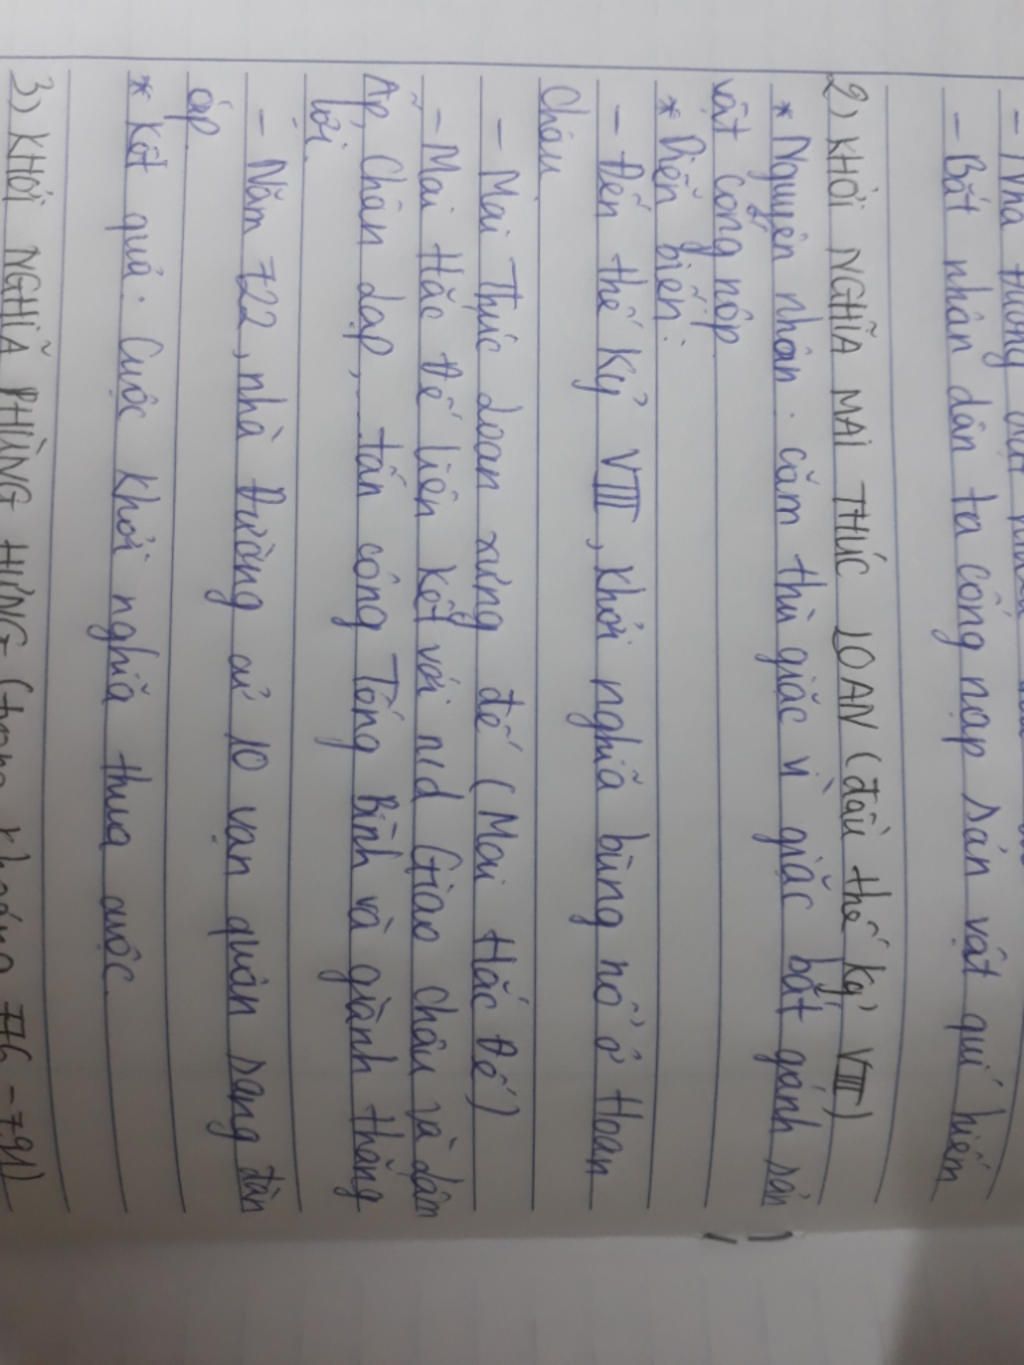 - Nhà Đường
- Bắt nhân dân ta cống nạp sản vật quí hiếm
2) KHỞI NGHĨA MAI THÚC LOAN (đầu thế kỷ VIII)
* Nguyên nhân: căm thù giặc vì giặc bắt gánh sản
vật cống nộp
* Diễn biến:
- Đến thế kỷ VIII, khởi nghĩa bùng nổ ở Hoan
Châu
- Mai Thúc Loan xưng đế (Mai Hắc Đế)
- Mai Hắc Đế liên kết với nd Giao Châu và dân
Ấp, Chân Lạp,... tấn công Tống Bình và giành thắng
lợi.
- Năm 722, nhà Đường cử 10 vạn quân sang đàn
áp
* Kết quả: Cuộc khởi nghĩa thua cuộc.
3) KHỞI NGHĨA PHÙNG HƯNG (trong khoảng 776 - 791)